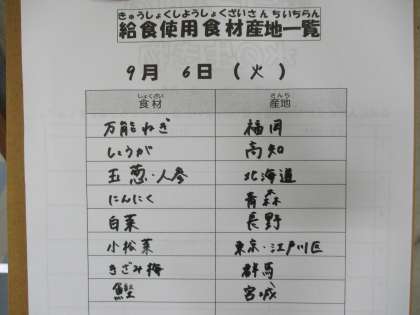 きゅうしょくしようしょくざいさんちいちらん
給食使用食材産地一覧
9月 6日 (火)
しょくざい さんち
食材 産地
万能ねぎ 福岡
しょうが 高知
玉葱・人参 北海道
にんにく 青森
白菜 長野
小松菜 東京・江戸川区
きざみ梅 群馬
鰹 宮城